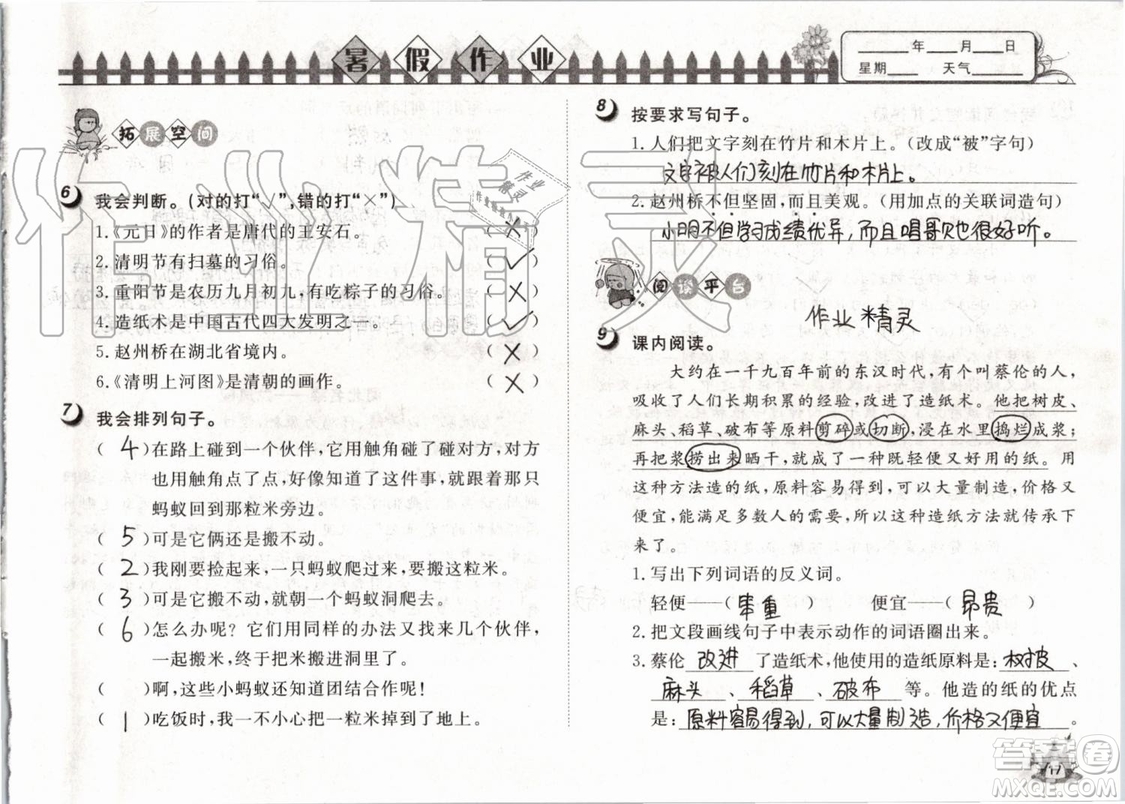 暑假作业
____年____月____日
星期____ 天气____
拓展空间
6 我会判断。(对的打“√”,错的打“×”)
1.《元日》的作者是唐代的王安石。 ( × )
2.清明节有扫墓的习俗。 ( ✓ )
3.重阳节是农历九月初九,有吃粽子的习俗。 ( × )
4.造纸术是中国古代四大发明之一。 ( ✓ )
5.赵州桥在湖北省境内。 ( × )
6.《清明上河图》是清朝的画作。 ( × )
7 我会排列句子。
( 4 )在路上碰到一个伙伴,它用触角碰了碰对方,对方
也用触角点了点,好像知道了这件事,就跟那只
蚂蚁回到那粒米旁边。
( 5 )可是它俩还是搬不动。
( 2 )我刚要捡起来,一只蚂蚁爬过来,要搬这粒米。
( 3 )可是它搬不动,就朝一个蚂蚁洞爬去。
( 6 )怎么办呢?它们用同样的办法又找来几个伙伴,
一起搬米,终于把米搬进洞里了。
( )啊,这些小蚂蚁还知道团结合作呢!
( 1 )吃饭时,我一不小心把一粒米掉到了地上。
8 按要求写句子。
1.人们把文字刻在竹片和木片上。(改成“被”字句)
文字被人们刻在竹片和木片上。
2.赵州桥不但坚固,而且美观。(用加点的关联词造句)
小明不但学习成绩优异,而且唱哥也很好听。
阅读平台
作业精灵
9 课内阅读。
大约在一千九百年前的东汉时代,有个叫蔡伦的人,
吸收了人们长期积累的经验,改进了造纸术。他把树皮、
麻头、稻草、破布等原料剪碎或切断,浸在水里捣烂成浆;
再把浆捞出来晒干,就成了一种既轻便又好用的纸。用
这种方法造的纸,原料容易得到,可以大量制造,价格又
便宜,能满足多数人的需要,所以这种造纸方法就传承下
来了。
1.写出下列词语的反义词。
轻便——( 笨重 ) 便宜——( 昂贵 )
2.把文段画线句子中表示动作的词语圈出来。
3.蔡伦 改进 了造纸术,他使用的造纸原料是: 树皮 、
麻头 、 稻草 、 破布 等。他造的纸的优点
是: 原料容易得到,可以大量制造,价格又便宜 。
作业精灵
答案圈
MXQE.COM
17